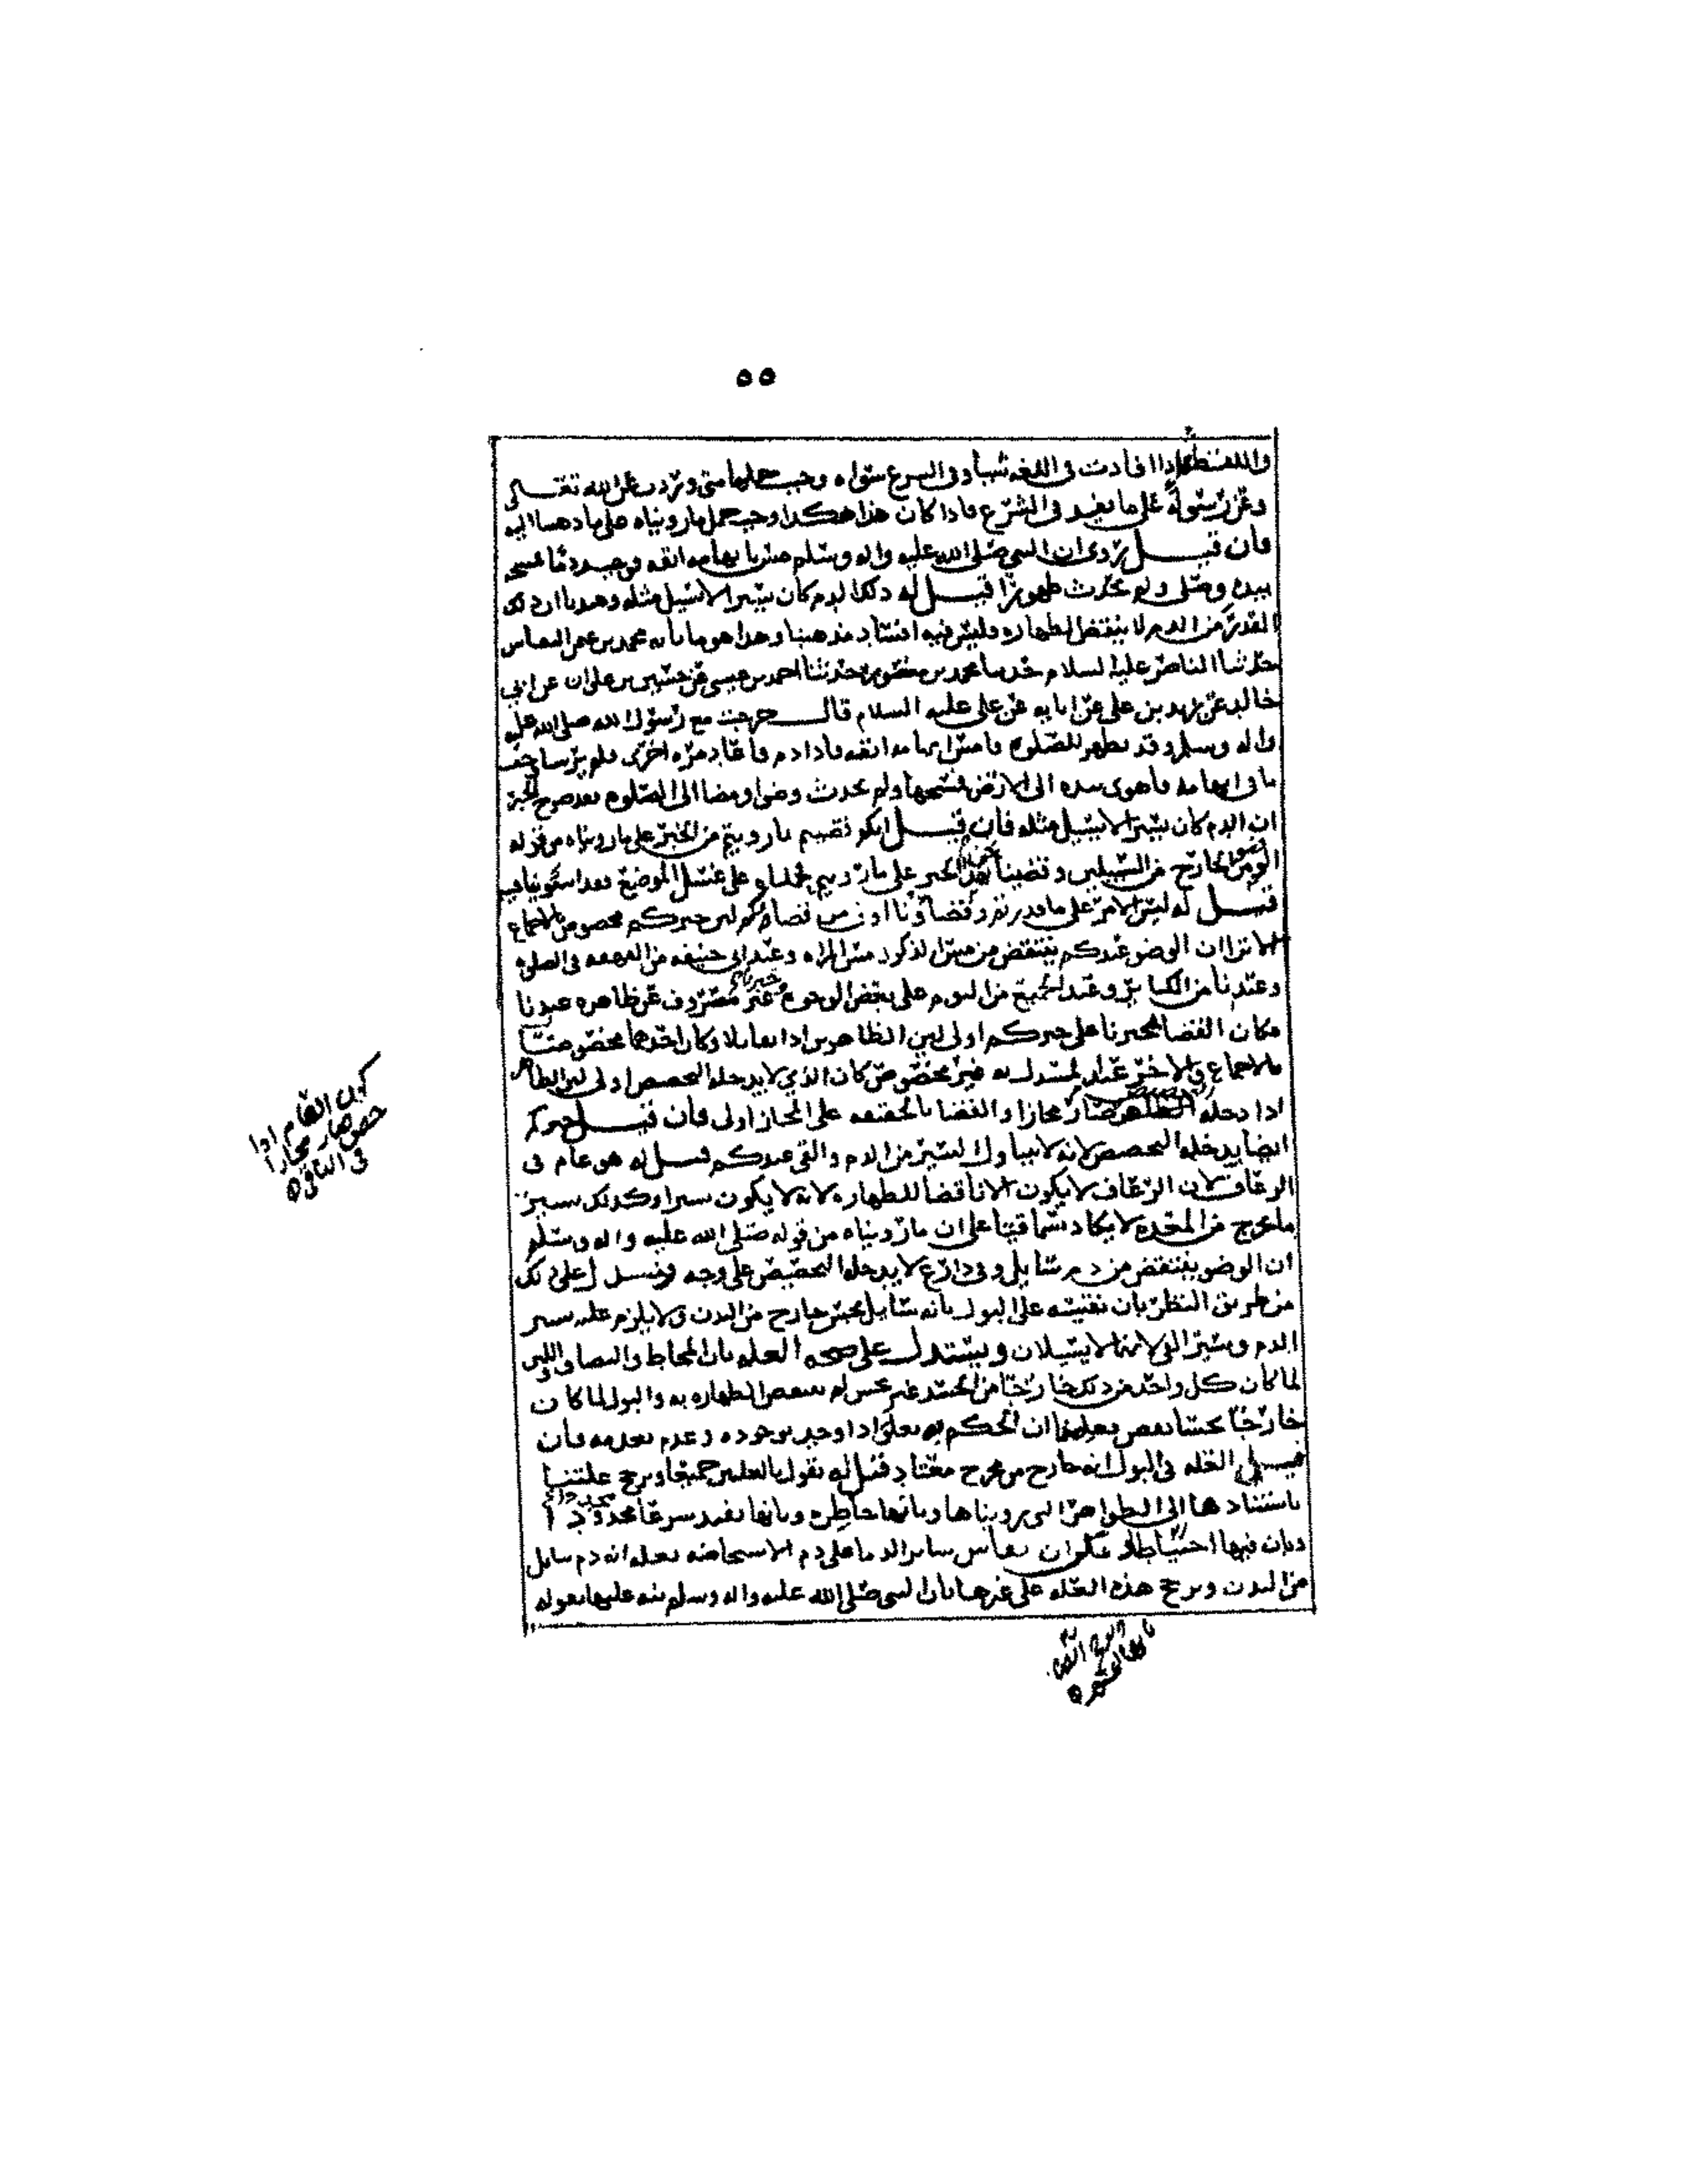 ٥٥
واللفظة اذا افادت فى اللغه شيا وفى الشرع سواه وجب حملها متى وردت عن الله تعالى
وعن رسوله على ما يفيد فى الشرع فاذا كان هذا هكذا وجب حمل ما رويناه على ما ذهبنا اليه
فان قيل روى ان النبي صلى الله عليه واله وسلم مس بابهامه انفه فوجد دما فمسحه
بيده وصلى ولم يحدث طهورا قيل له ذلك الدم كان يسيرا لا يسيل مثله وعندنا ان ذلك
القدر من الدم لا ينقض الطهاره وليس فيه افساد مذهبنا وهذا هو ما محمد بن عثمن النقاش
حدثنا الناصر عليه السلام حدثنا محمد بن منصور حدثنا احمد بن عيسى عن حسين بن علوان عن ابي
خالد عن زيد بن علي عن ابايه عن علي عليه السلام قال خرجت مع رسول الله صلى الله عليه
واله وسلم وقد تطهر للصلوه فامس ابهامه انفه فاذا دم فاعاد مره اخرى فلم ير شيا وجف
ما فى ابهامه فاهوى بيده الى الارض فمسحها ولم يحدث وضوا ومضا الى الصلوه
ان الدم كان يسيرا لا يسيل مثله فان قيل انكم قضيتم بما رويتم من الخبر على ما رويناه من قوله
الوضو الخارج من السبيلين وقضينا الخبر على ما رويتم وعلى غسل الموضع
قيل له ليس الامر على ما قدرتم وقضاؤنا اولى من قضائكم لان خبركم مخصوص بالاجماع
الا ترا ان الوضو عندكم ينتقض من مس الذكر ومس المراه وعند ابى حنيفه من القهقهه فى الصلوه
وعندنا من الكبائر وعند الجميع من النوم على بعض الوجوه وخبرنا غير مصروف عن ظاهره عندنا
فكان القضا بخبرنا على خبركم اولى لان الظاهرين اذا تقابلا وكان احدهما مخصوصا
بالاجماع والاخر عند المستدل به غير مخصوص كان الذي لا يدخله التخصيص اولى لان الظاهر
اذا دخله التخصيص صار مجازا والقضا بالحقيقه على المجاز اولى فان قيل خبركم
ايضا يدخله التخصيص لانه لا يتناول اليسير من الدم والقى عندكم قيل له هو عام فى
الرعاف لان الرعاف لا يكون الا ناقضا للطهاره لانه لا يكون يسيرا وكذلك يسير
ما يخرج من المعده لا يكاد يسما قيا على ان ما رويناه من قوله صلى الله عليه واله وسلم
ان الوضو ينتقض من دم سايل وقى ذارع لا يدخله التخصيص على وجه ويدل على ذلك
من طريق النظر بان نقيسه على البول بانه سايل نجس خارج من البدن ولا يلزم عليه يسير
الدم ويسير القى لانهما لا يسيلان ويستدل على صحه العله بان المخاط والبصاق واللبن
لما كان كل واحد من ذلك خارجا من الجسد غير نجس لم تنتقض الطهاره به والبول لما كان
خارجا نجسا نقض فعلمنا ان الحكم به تعلق اذا وجد بوجوده وعدم بعدمه فان
قيل العله فى البول انه خارج من مخرج معتاد قيل له نقول بالعلتين جميعا ونرجح علتنا
باستنادها الى الظواهر التى رويناها وبانها حاظره وبانها تفيد شرعا مجددا
وبان فيها احتياطا ان نقاس ساير الدما على دم الاستحاضه بعله انه دم سايل
من البدن ونرجح هذه العله على غيرها بان النبى صلى الله عليه واله وسلم نبه عليها بقوله
كون العام اذا
خص صار مجازا
فى الباقى